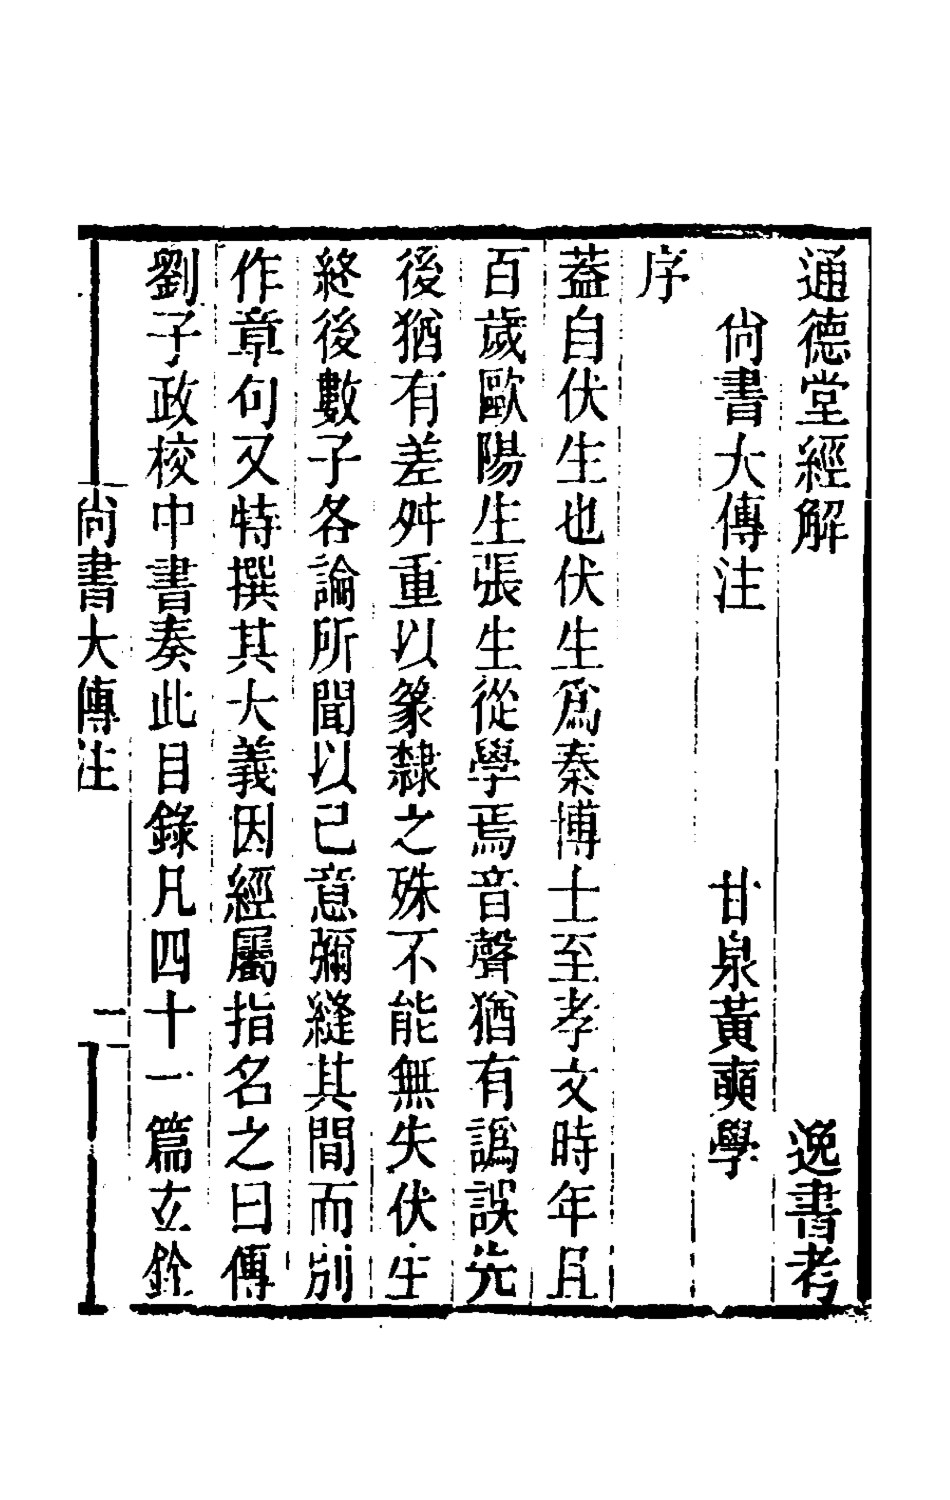 通德堂經解　逸書考
尙書大傳注　甘泉黃奭學
序
葢自伏生也伏生爲秦博士至孝文時年且
百歲歐陽生張生從學焉音聲猶有譌誤先
後猶有差舛重以篆隸之殊不能無失伏生
終後數子各論所聞以己意彌縫其間而別
作章句又特撰其大義因經屬指名之曰傳
劉子政校中書奏此目錄凡四十一篇玄銓
尙書大傳注　一